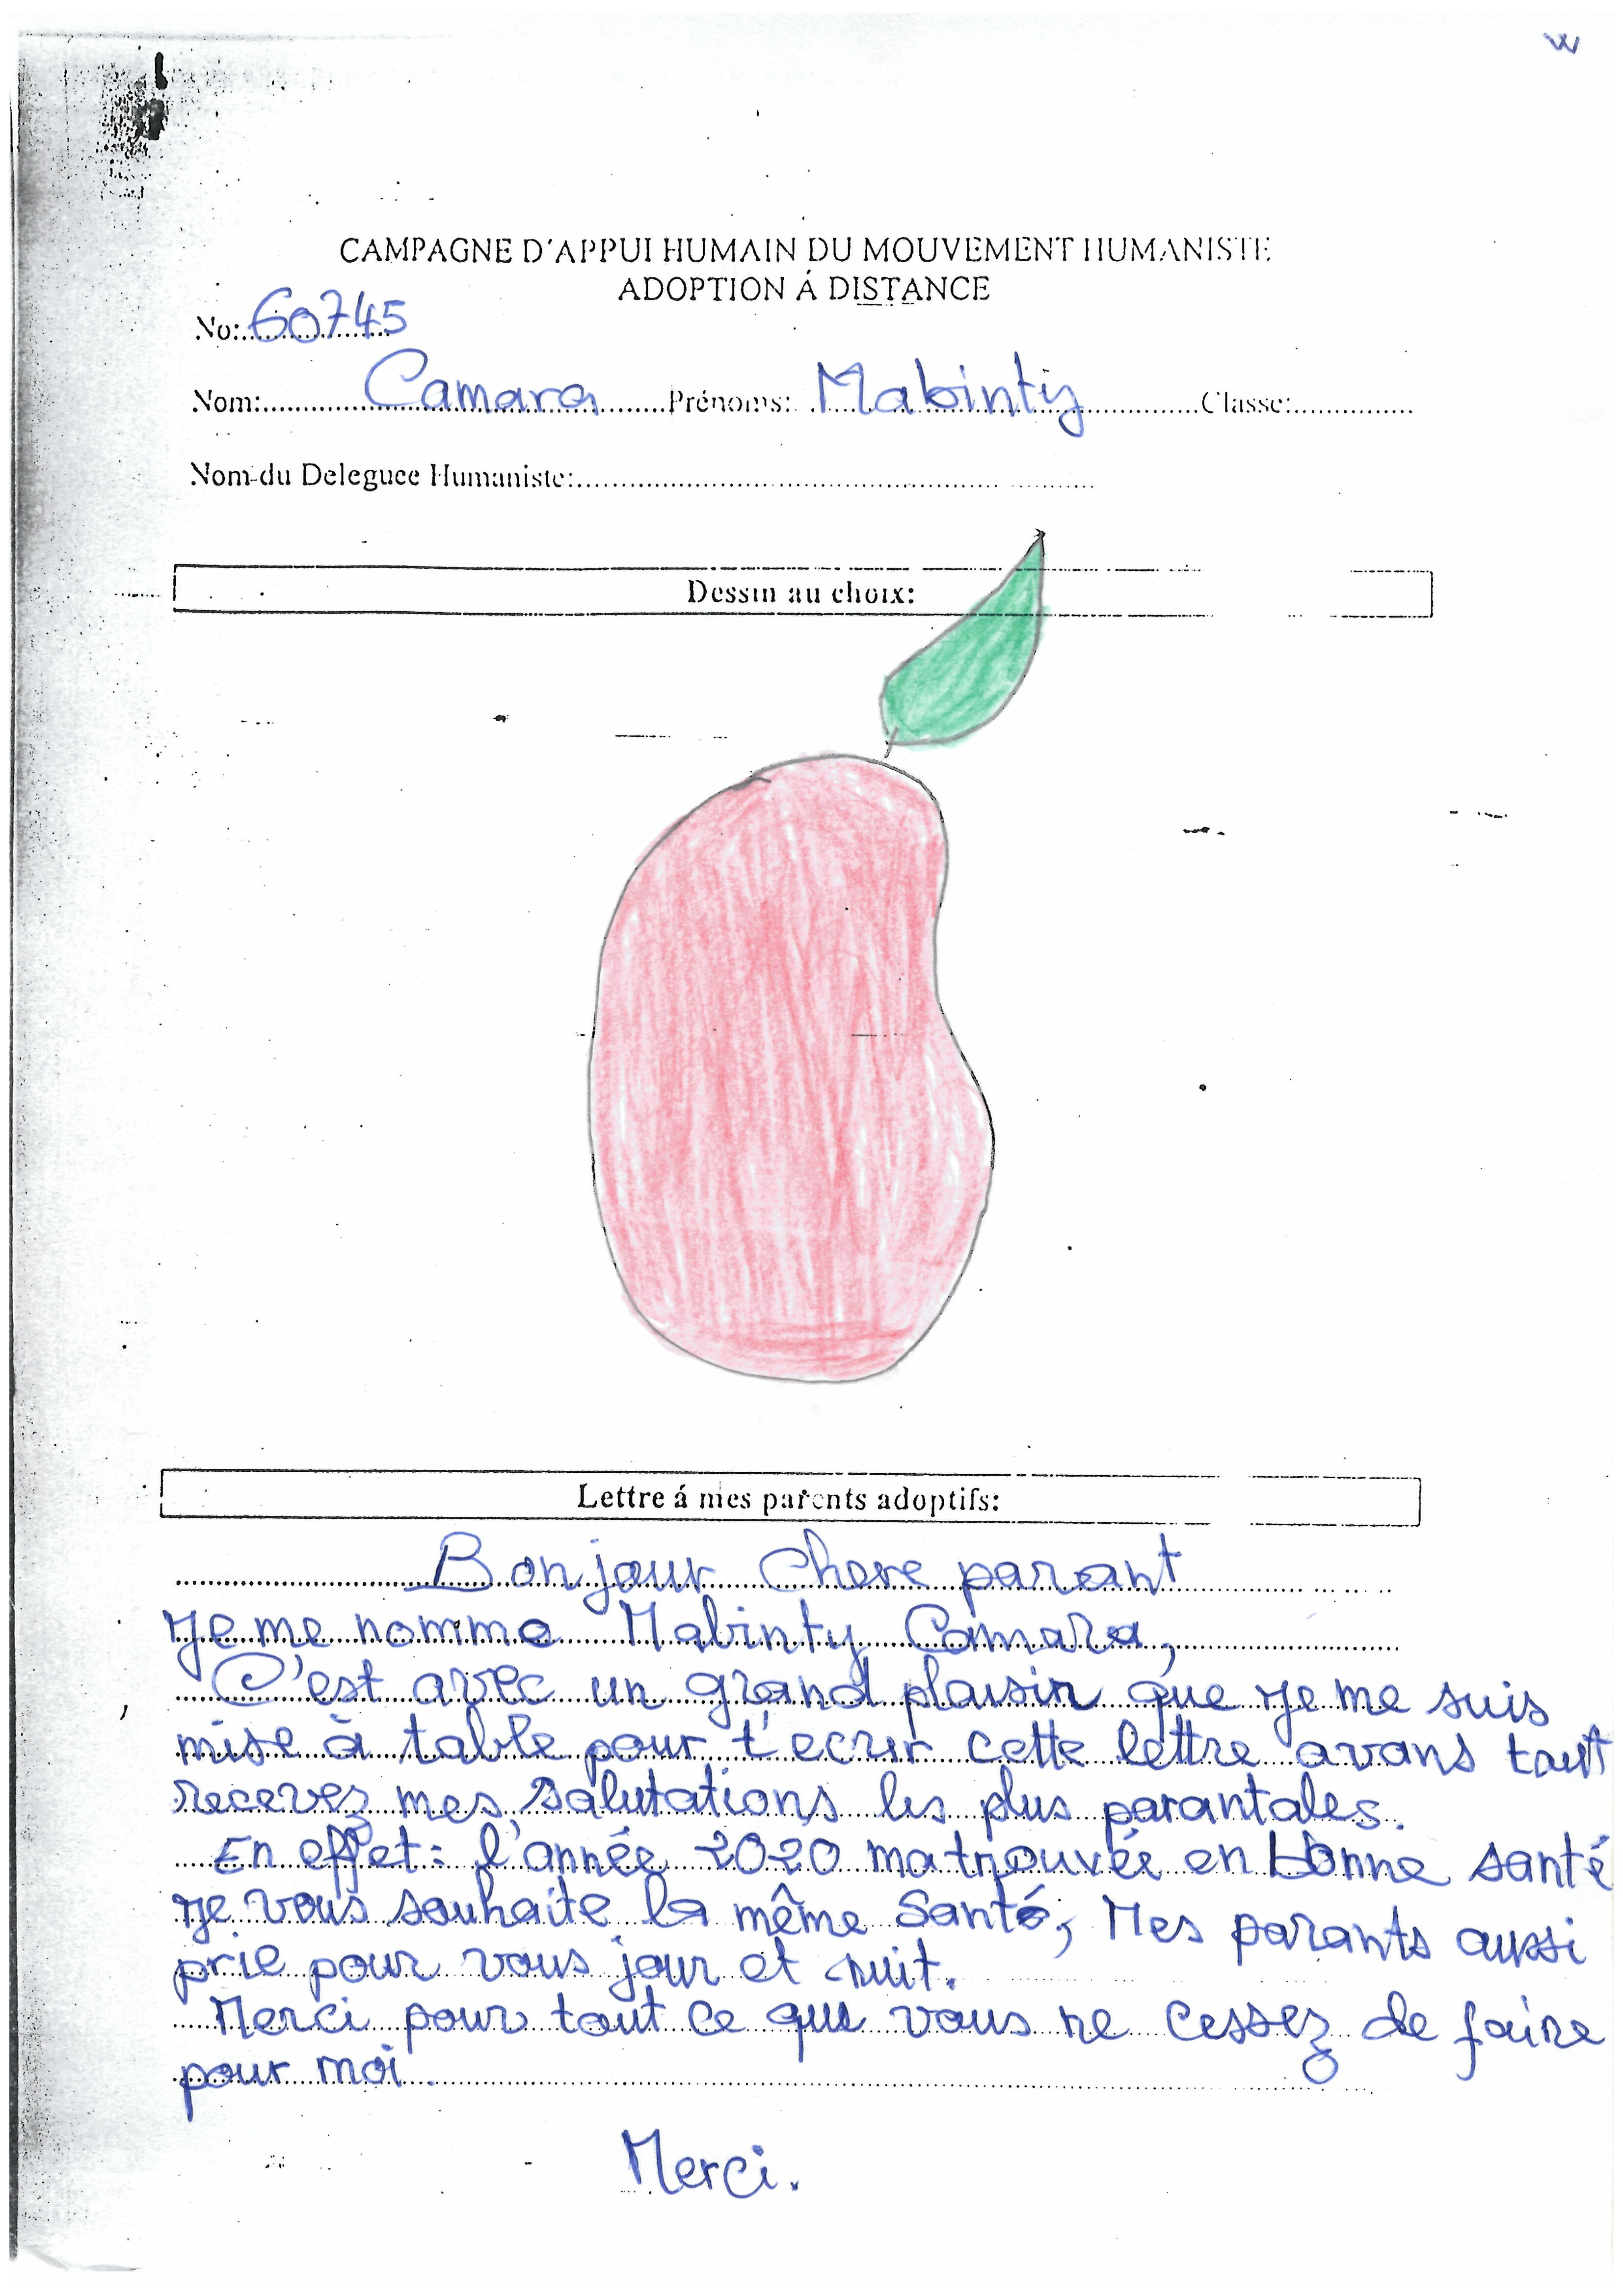 W
CAMPAGNE D'APPUI HUMAIN DU MOUVEMENT HUMANISTE
ADOPTION Á DISTANCE
No: 60745
Nom: Camara Prénoms: Mabinty Classe:
Nom du Deleguee Humaniste:
Dessin au choix:
Lettre á mes parents adoptifs:
Bonjour chere parant
Je me nomme Mabinty Camara,
C'est avec un grand plaisir que je me suis
mise à table pour t'ecrir cette lettre avans tout
recevez mes salutations les plus parantales.
En effet: l'année 2020 ma trouvée en bonne santé
je vous souhaite la même Santé, Mes parants aussi
prie pour vous jour et nuit.
Merci pour tout ce que vous ne cessez de faire
pour moi.
Merci.